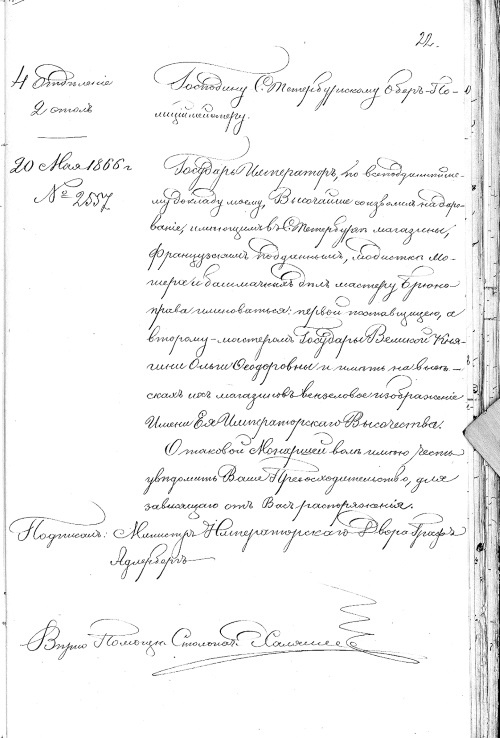 22.
4 Отдѣленіе
2 столъ
Господину С. Петербургскому Оберъ-По-
лицiймейстеру.
20 Мая 1866 г
№ 2557
Государь Императоръ, по всеподданнѣйше-
му докладу моему, Высочайше соизволилъ на даро-
ваніе, имеющимъ въ С. Петербургѣ магазины,
французскимъ подданнымъ, модистке Мо-
и башмачныхъ дѣлъ мастеру
права именоваться: первой поставщицею, а
второму - мастеромъ Государыни Великой Кня-
гини Ольги Ѳеодоровны и иметь на вывѣ-
скахъ ихъ магазиновъ вензеловое изображеніе
Имени Ея Императорскаго Высочества.
О таковой Монаршей волѣ имѣю честь
увѣдомить Ваше Превосходительство, для
зависящаго отъ Васъ распоряженія.
Подписалъ: Министръ Императорскаго Двора Графъ
Адлербергъ
Вѣрно Помощн. Столонач.